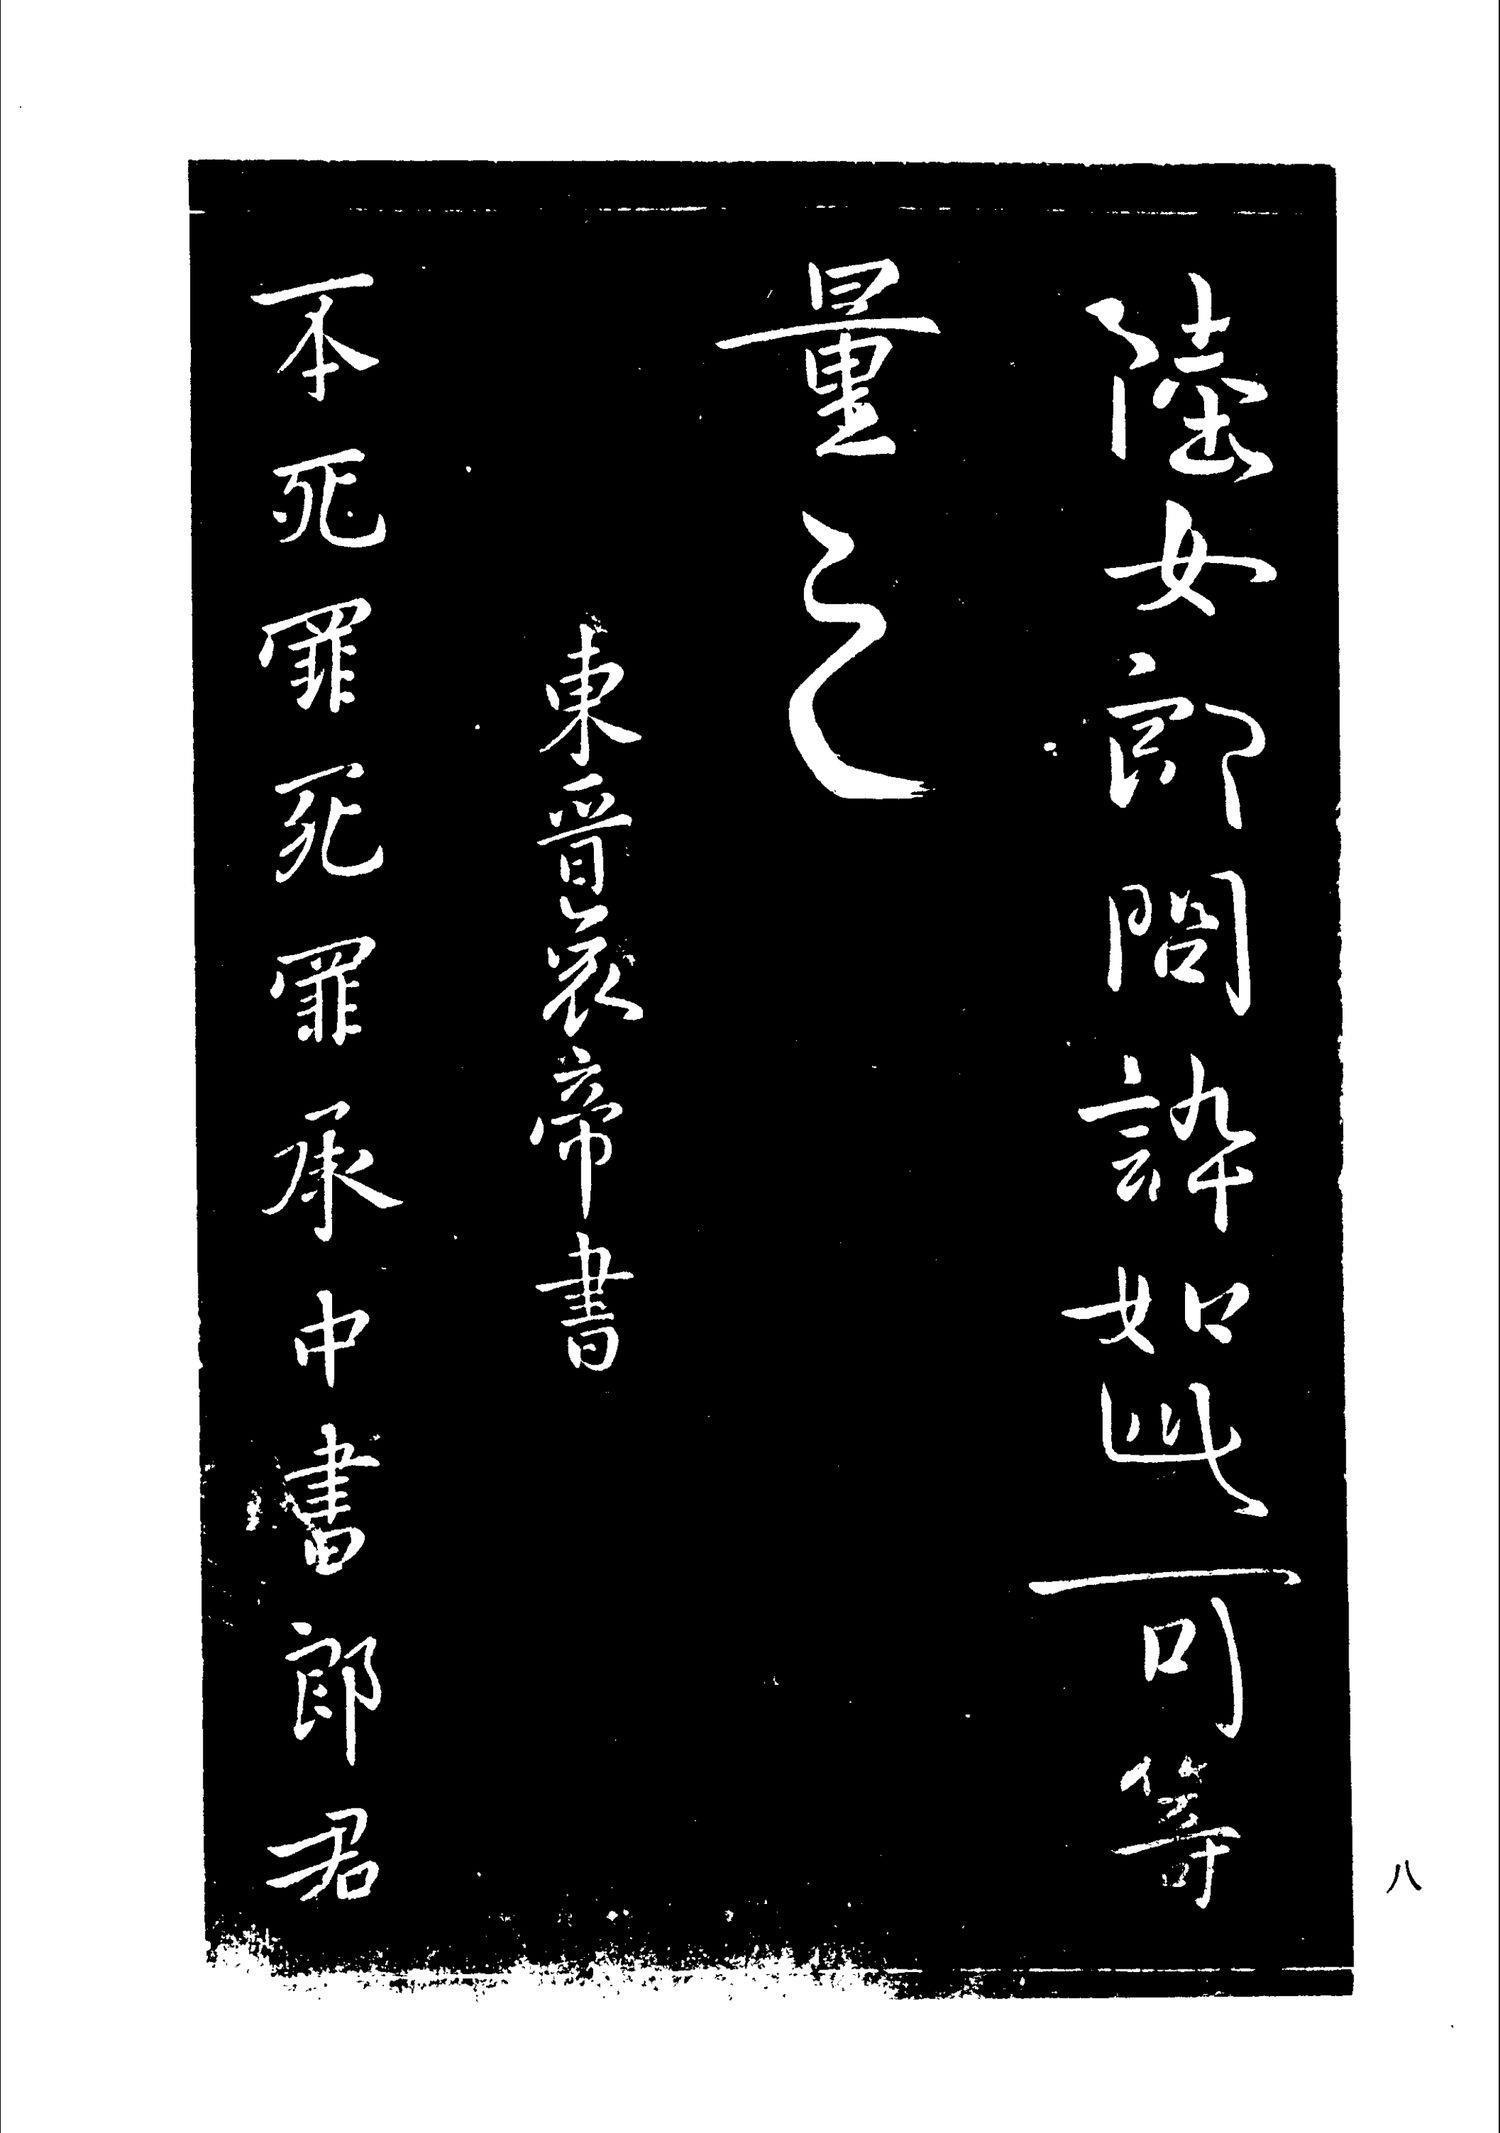 陸女郎問訃如此可等
量之
東晉哀帝書
丕死罪死罪承中書郎君
八